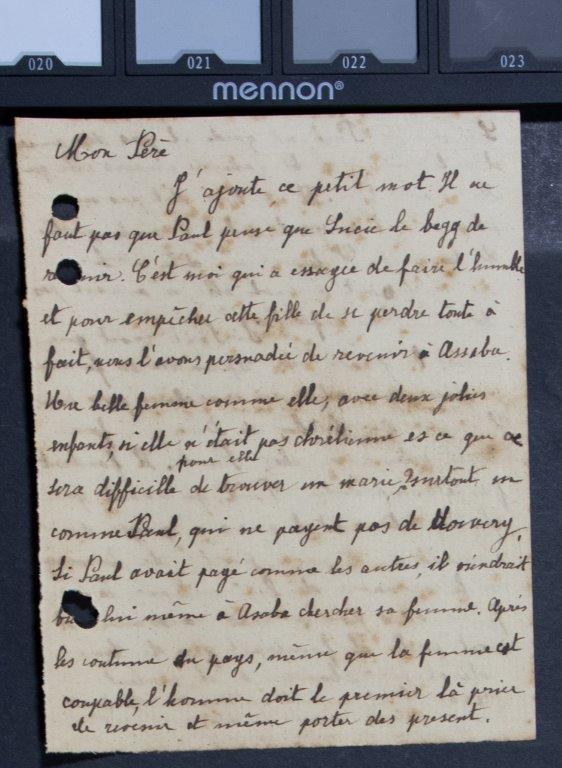 020 021 022 023
mennon®
Mon Père
J'ajoute ce petit mot. Il ne
faut pas que Paul pense que Lucie le begg de
revenir. C'est moi qui a essayée de faire l'humble
et pour empêcher cette fille de se perdre toute à
fait, nous l'avons persuadée de revenir à Assaba.
Une belle femme comme elle, avec deux jolies
enfants, si elle n'était pas chrétienne es ce que ce
pour elle
sera difficille de trouver un marie? surtout un
comme Paul, qui ne payent pas de dowery.
Si Paul avait payé comme les autres, il viendrait
lui même à Asaba chercher sa femme. Après
les coutume du pays, même que la femme est
coupable, l'homme doit le premier là prier
de revenir et même porter des present.